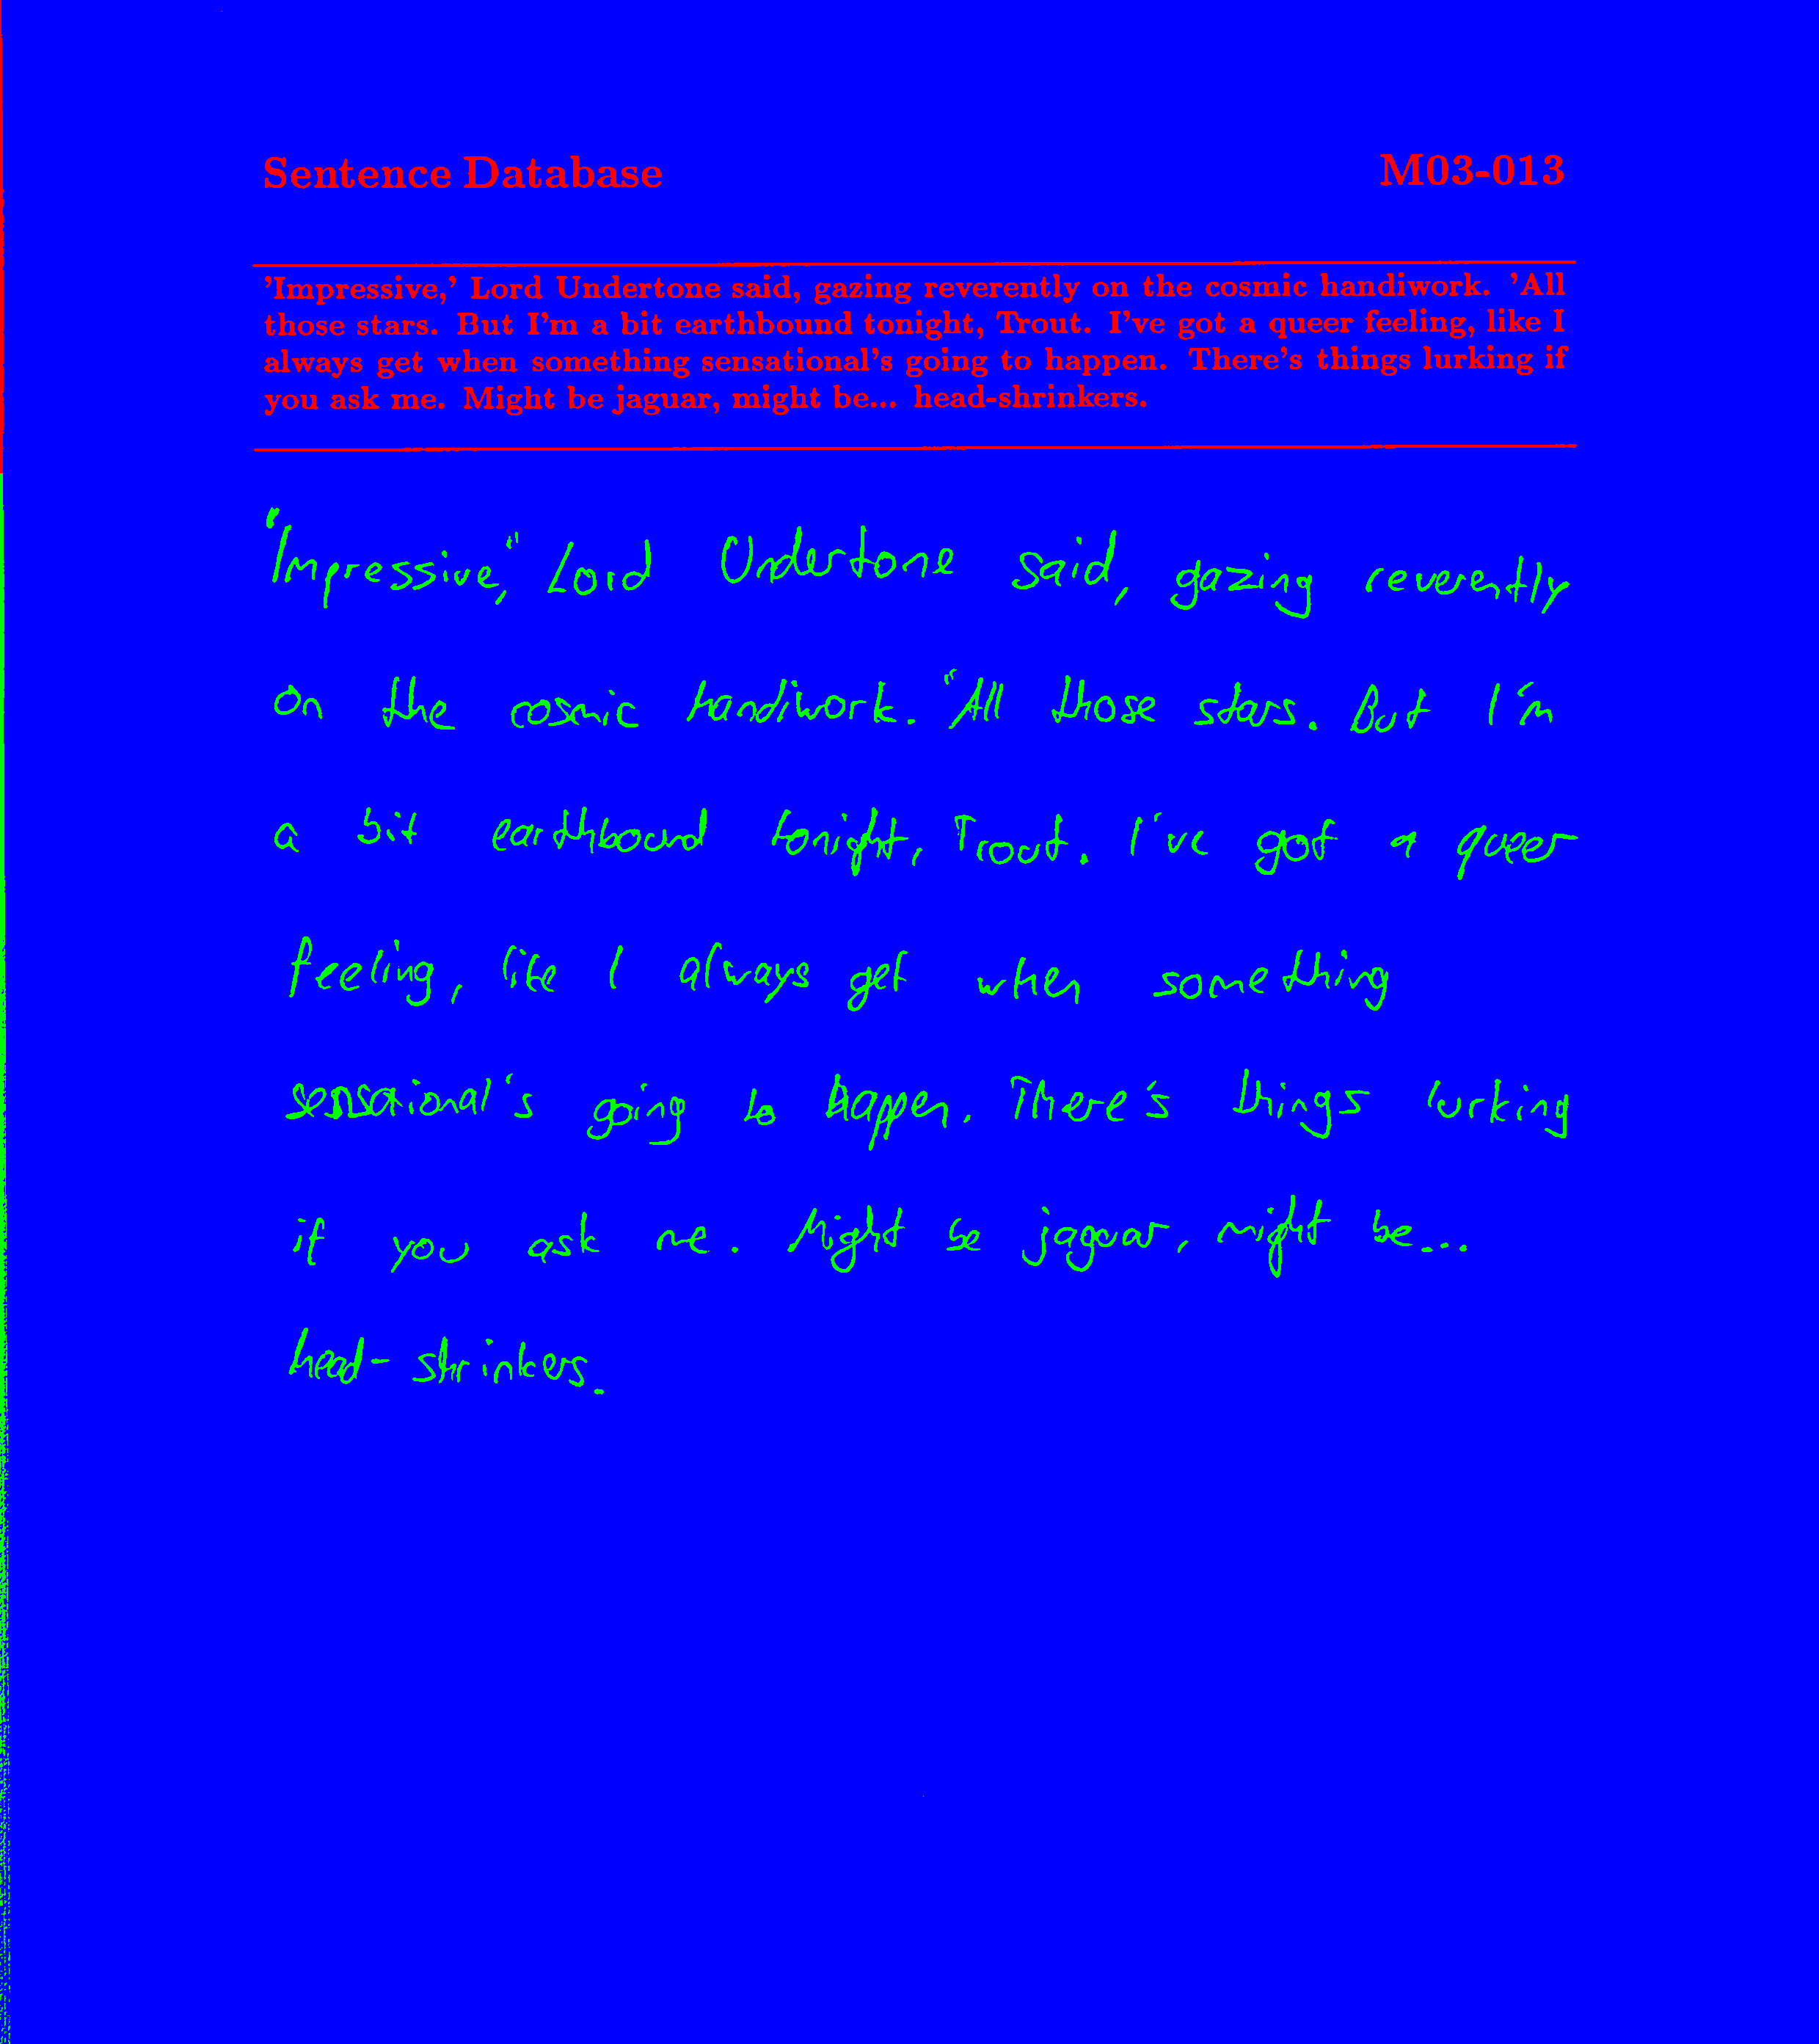 Sentence Database M03-013
'Impressive,' Lord Undertone said, gazing reverently on the cosmic handiwork. 'All
those stars. But I'm a bit earthbound tonight, Trout. I've got a queer feeling, like I
always get when something sensational's going to happen. There's things lurking if
you ask me. Might be jaguar, might be... head-shrinkers.
"Impressive," Lord Undertone said, gazing reverently
on the cosmic handiwork. "All those stars. But I'm
a bit earthbound tonight, Trout. I've got a queer
feeling, like I always get when something
sensational's going to happen. There's things lurking
if you ask me. Might be jaguar, might be...
head-shrinkers.